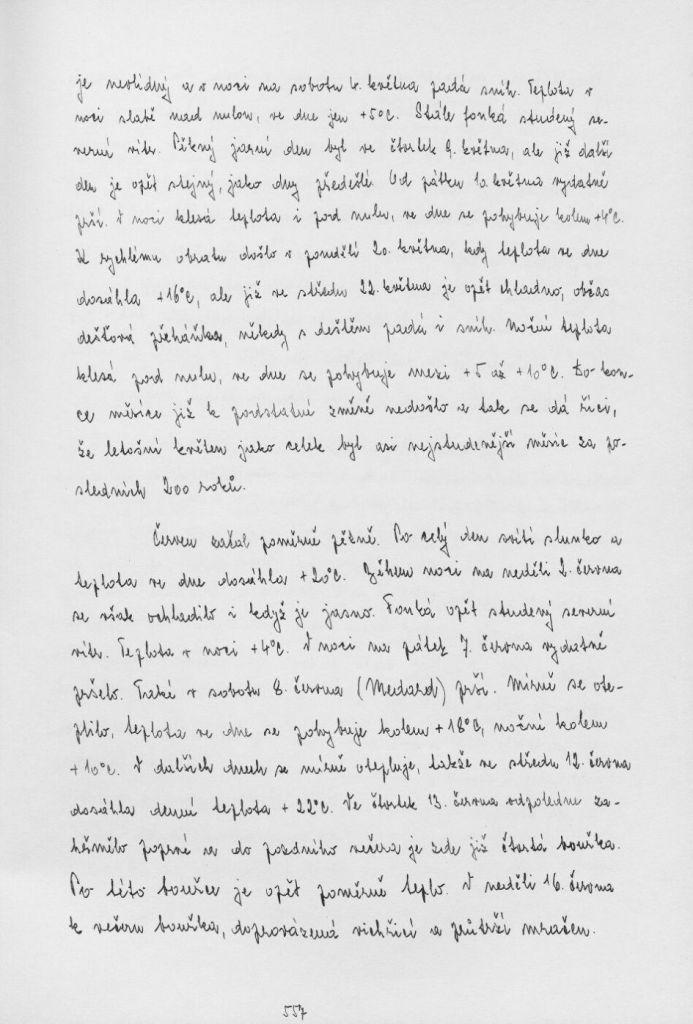 je nevlídný a v noci na sobotu 4. května padá sníh. Teplota v
noci slabě nad nulou, ve dne jen +5°C. Stále fouká studený se-
verní vítr. Pěkný jasný den byl ve čtvrtek 9. května, ale již další
den je opět stejný, jako dny předešlé. Od pátku 10. května vydatně
prší. V noci klesá teplota i pod nulu, ve dne se pohybuje kolem +4°C.
K rychlému obratu došlo v pondělí 20. května, kdy teplota ve dne
dosáhla +16°C, ale již ve středu 22. května je opět chladno, občas
dešťová přeháňka, někdy s deštěm padá i sníh. Noční teplota
klesá pod nulu, ve dne se pohybuje mezi +5 až +10°C. Do kon-
ce měsíce již k podstatné změně nedošlo a tak se dá říci,
že letošní květen jako celek byl asi nejstudenější měsíc za po-
sledních 200 roků.
Červen začal poměrně pěkně. Po celý den svítí slunko a
teplota ve dne dosáhla +20°C. Během noci na neděli 2. června
se však ochladilo i když je jasno. Fouká opět studený severní
vítr. Teplota v noci +4°C. V noci na pátek 7. června vydatně
pršelo. Také v sobotu 8. června (Medard) prší. Mírně se ote-
plilo, teplota ve dne se pohybuje kolem +18°C, noční kolem
+10°C. V dalších dnech se mírně otepluje, takže ve středu 12. června
dosáhla denní teplota +22°C. Ve čtvrtek 13. června odpoledne za-
hřmělo poprvé a do pozdního večera je zde již čtvrtá bouřka.
Po této bouřce je opět poměrně teplo. V neděli 16. června
k večeru bouřka, doprovázená vichřicí a průtrží mračen.
557